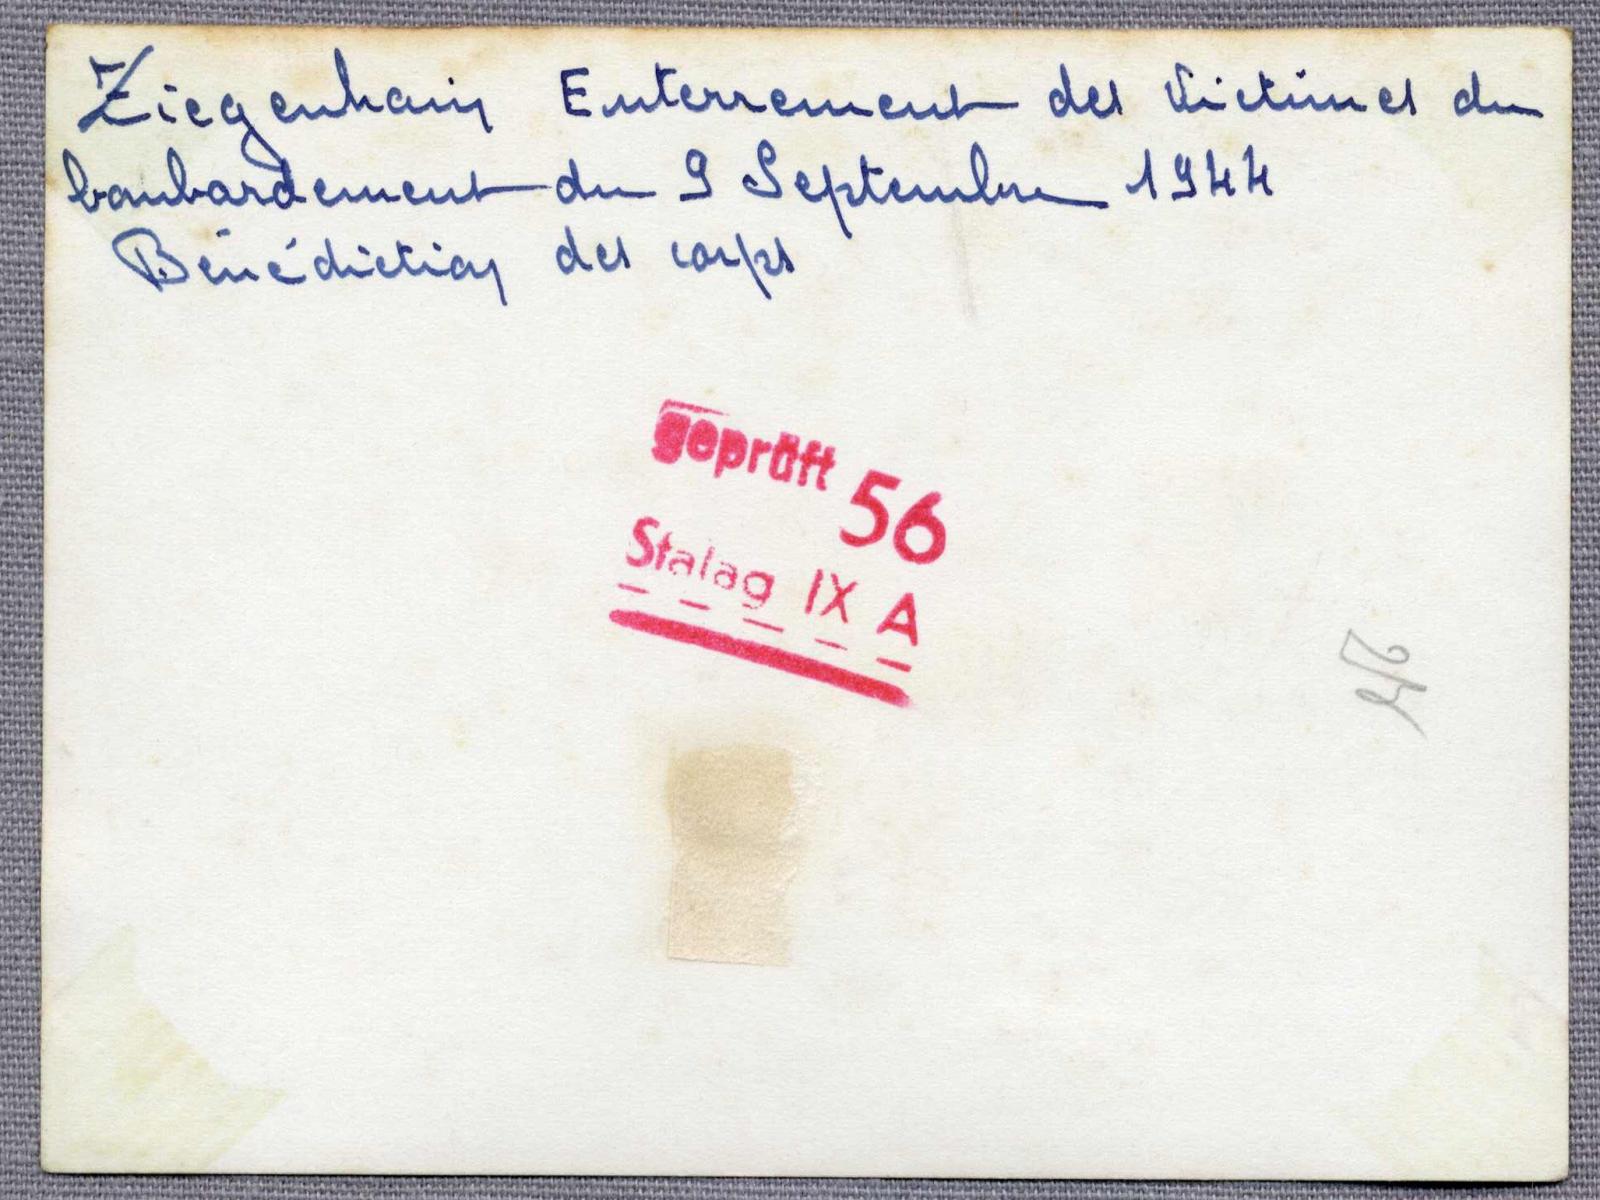 Ziegenhain Enterrement des Victimes du
bombardement du 9 Septembre 1944
Bénédiction des corps
geprüft 56
Stalag IX A